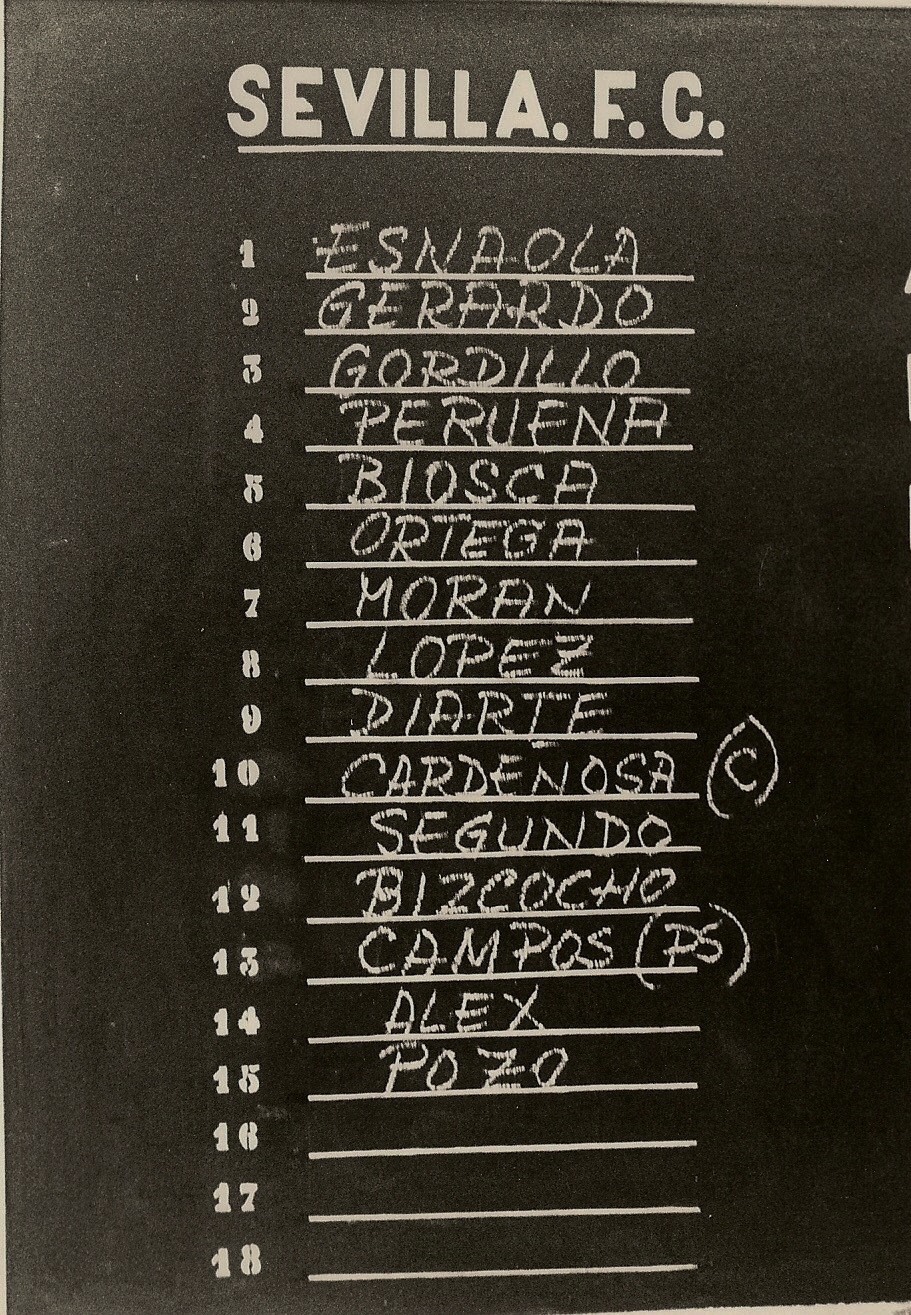 SEVILLA. F. C.
1 ESNAOLA
2 GERARDO
3 GORDILLO
4 PERUENA
5 BIOSCA
6 ORTEGA
7 MORAN
8 LOPEZ
9 DIARTE
10 CARDEÑOSA (C)
11 SEGUNDO
12 BIZCOCHO
13 CAMPOS (PS)
14 ALEX
15 POZO
16
17
18